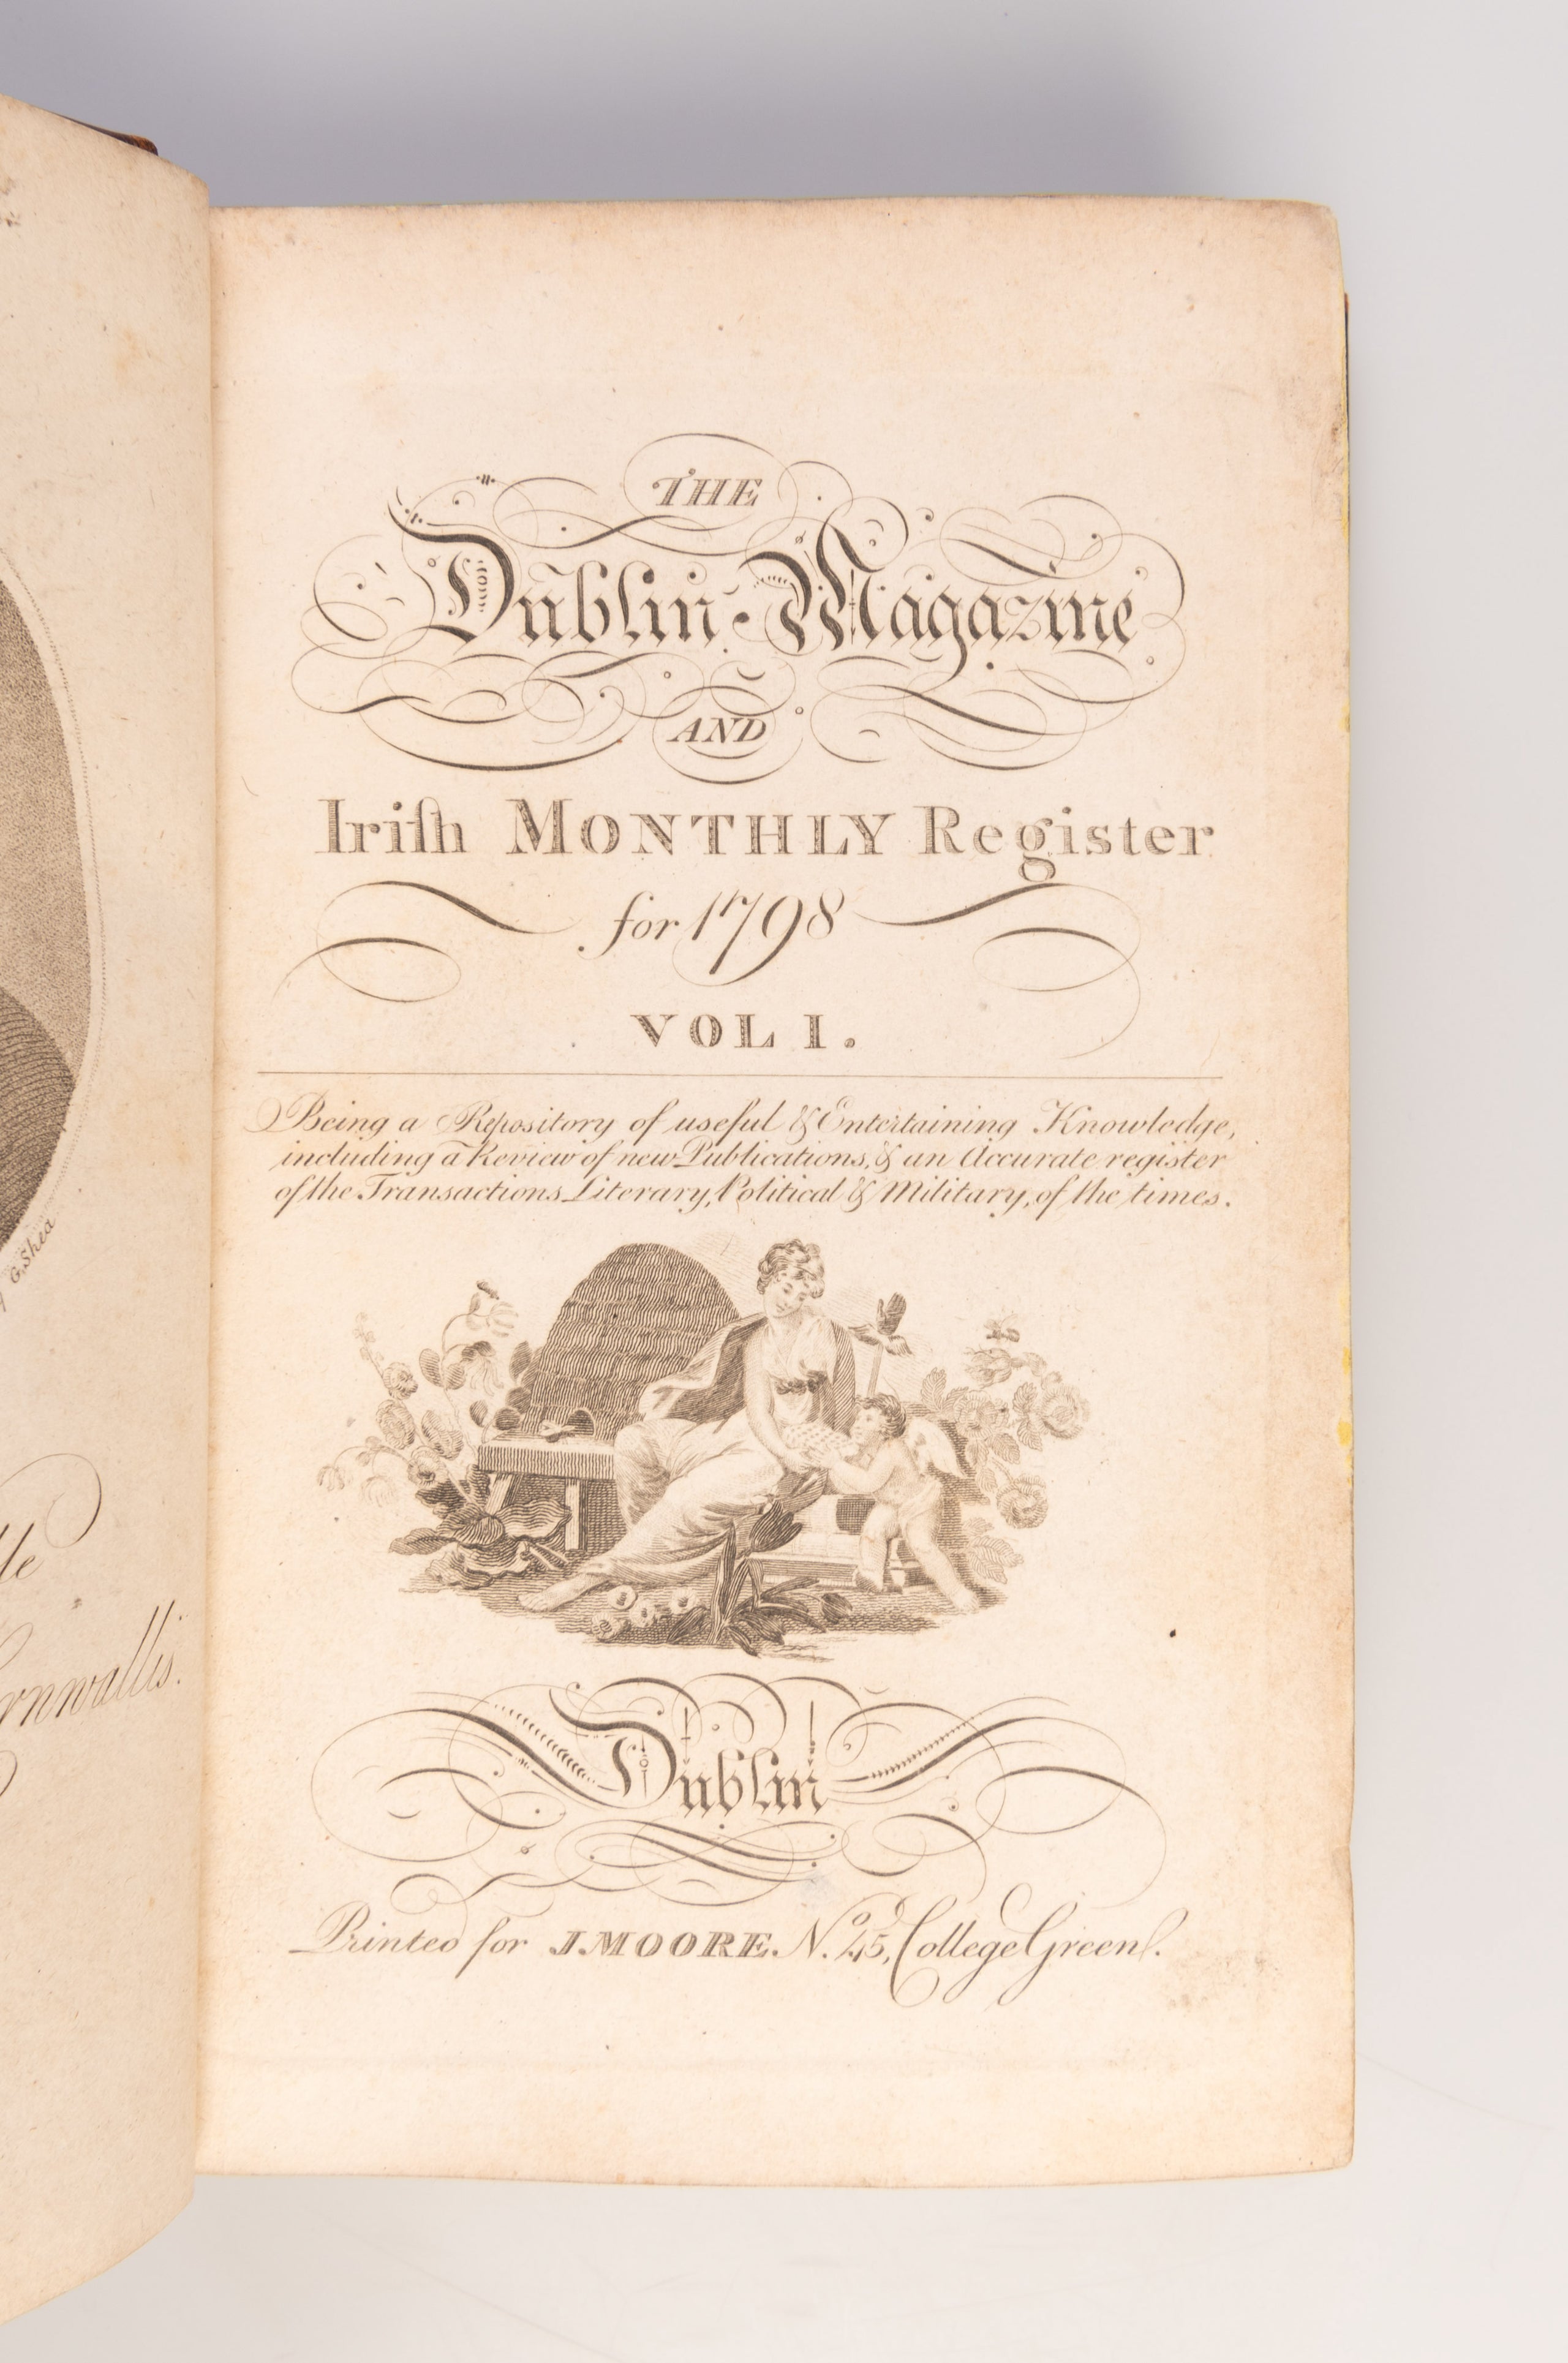 G. Shea
Cornwallis.
THE
Dublin Magazine
AND
Iriſh MONTHLY Register
for 1798
VOL I.
Being a Repository of useful & Entertaining Knowledge,
including a Review of new Publications, & an Accurate register
of the Transactions Literary, Political & Military, of the times.
Dublin
Printed for J. MOORE No. 45, College Green.